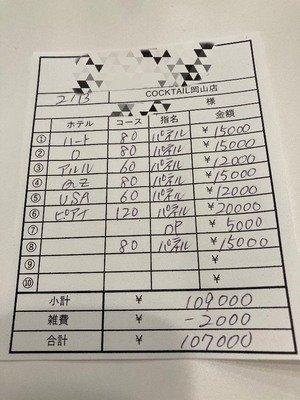 COCKTAIL岡山店
2/15 様
ホテル コース 指名 金額
① ハート 80 パネル ¥15000
② D 80 パネル ¥15000
③ アルル 60 パネル ¥12000
④ 80 パネル ¥15000
⑤ USA 60 パネル ¥12000
⑥ ピアイ 120 パネル ¥20000
⑦ OP ¥5000
⑧ 80 パネル ¥15000
⑨ ¥
⑩ ¥
小計 ¥ 109000
雑費 ¥ -2000
合計 ¥ 107000